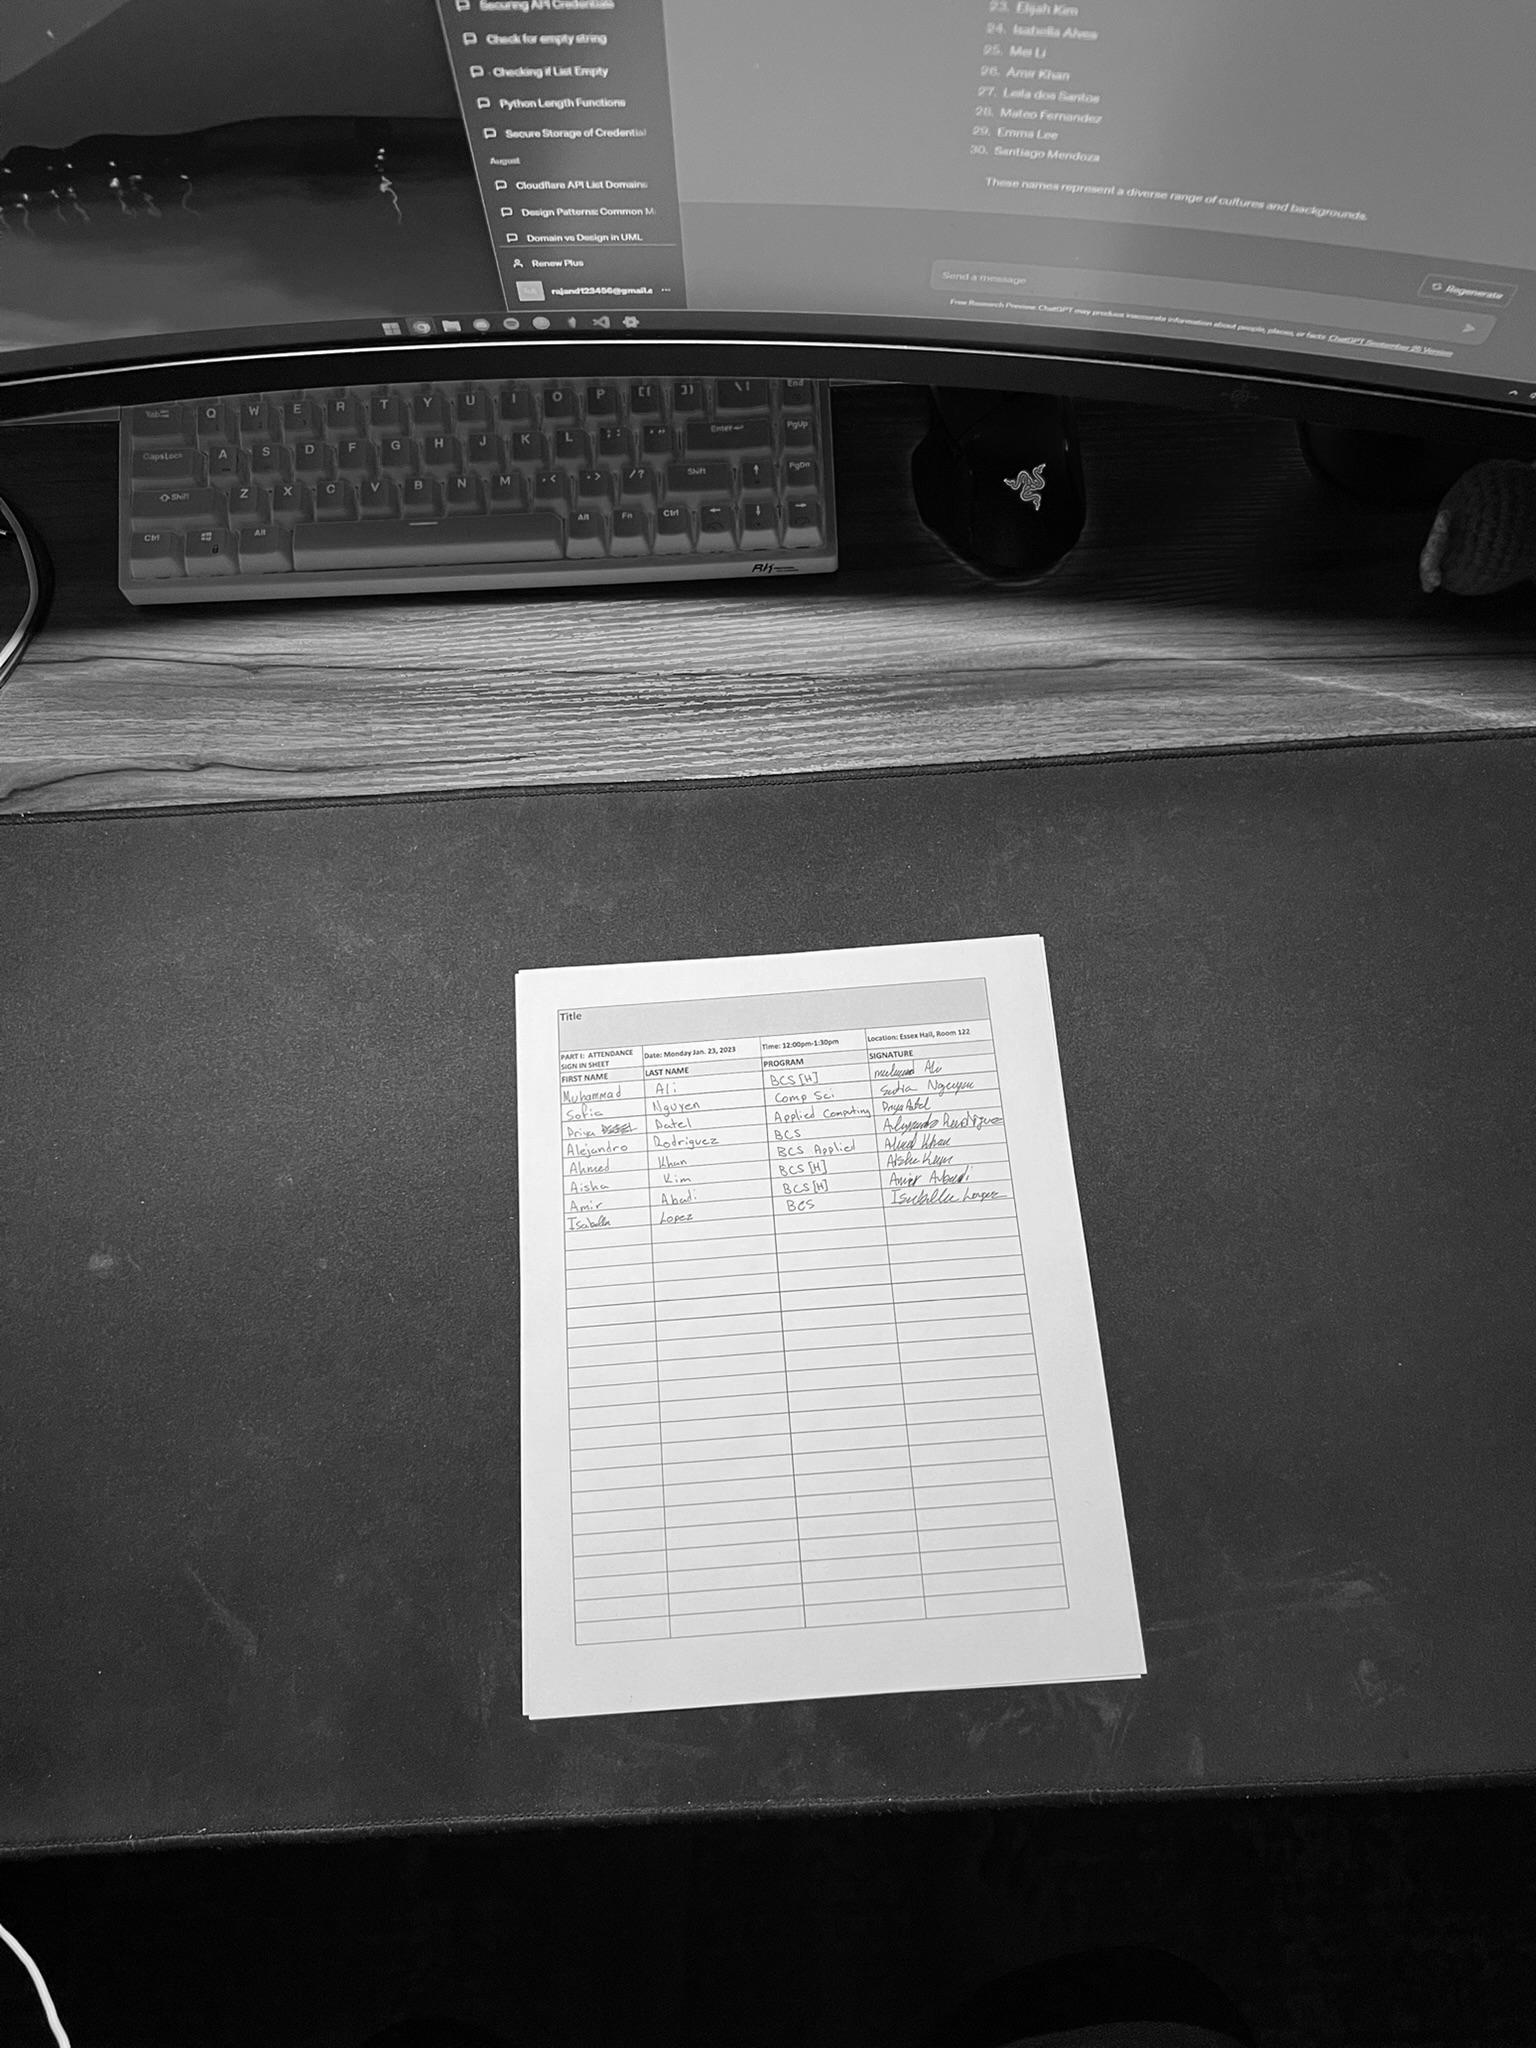 Securing API Credentials
Check for empty string
Checking if List Empty
Python Length Functions
Secure Storage of Credential
August
Cloudflare API List Domains
Design Patterns: Common M
Domain vs Design in UML
Renew Plus
rajand123456@gmail.c ...
23. Elijah Kim
24. Isabella Alves
25. Mei Li
26. Amir Khan
27. Leila dos Santos
28. Mateo Fernandez
29. Emma Lee
30. Santiago Mendoza
These names represent a diverse range of cultures and backgrounds.
Send a message
Regenerate
Free Research Preview. ChatGPT may produce inaccurate information about people, places, or facts. ChatGPT September 25 Version
Tab Q W E R T Y U I O P [{ ]} \| End
CapsLock A S D F G H J K L ;: '" Enter PgUp
Shift Z X C V B N M ,< .> /? Shift ↑ PgDn
Ctrl Alt Alt Fn Ctrl ← ↓ →
RK
Title
PART I: ATTENDANCE SIGN IN SHEET Date: Monday Jan. 23, 2023 Time: 12:00pm-1:30pm Location: Essex Hall, Room 122
FIRST NAME LAST NAME PROGRAM SIGNATURE
Muhammad Ali BCS [H]
Sofia Nguyen Comp Sci Sofia Nguyen
Priya Patel Applied Computing Priya Patel
Alejandro Rodriguez BCS Alejandro Rodriguez
Ahmed Khan BCS Applied Ahmed Khan
Aisha Kim BCS [H] Aisha Kim
Amir Abadi BCS [H] Amir Abadi
Isabella Lopez BCS Isabella Lopez